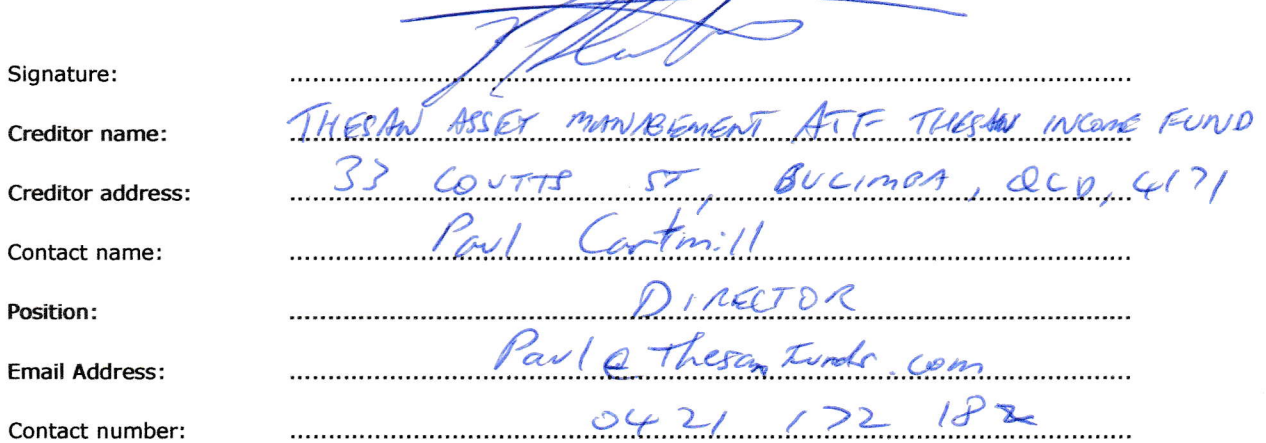 Signature:
Creditor name: THESAN ASSET MANAGEMENT ATF THESAN INCOME FUND
Creditor address: 33 COUTTS ST, BULIMBA, QLD, 4171
Contact name: Paul Cartmill
Position: DIRECTOR
Email Address: Paul@ThesanFunds.com
Contact number: 0421 172 182